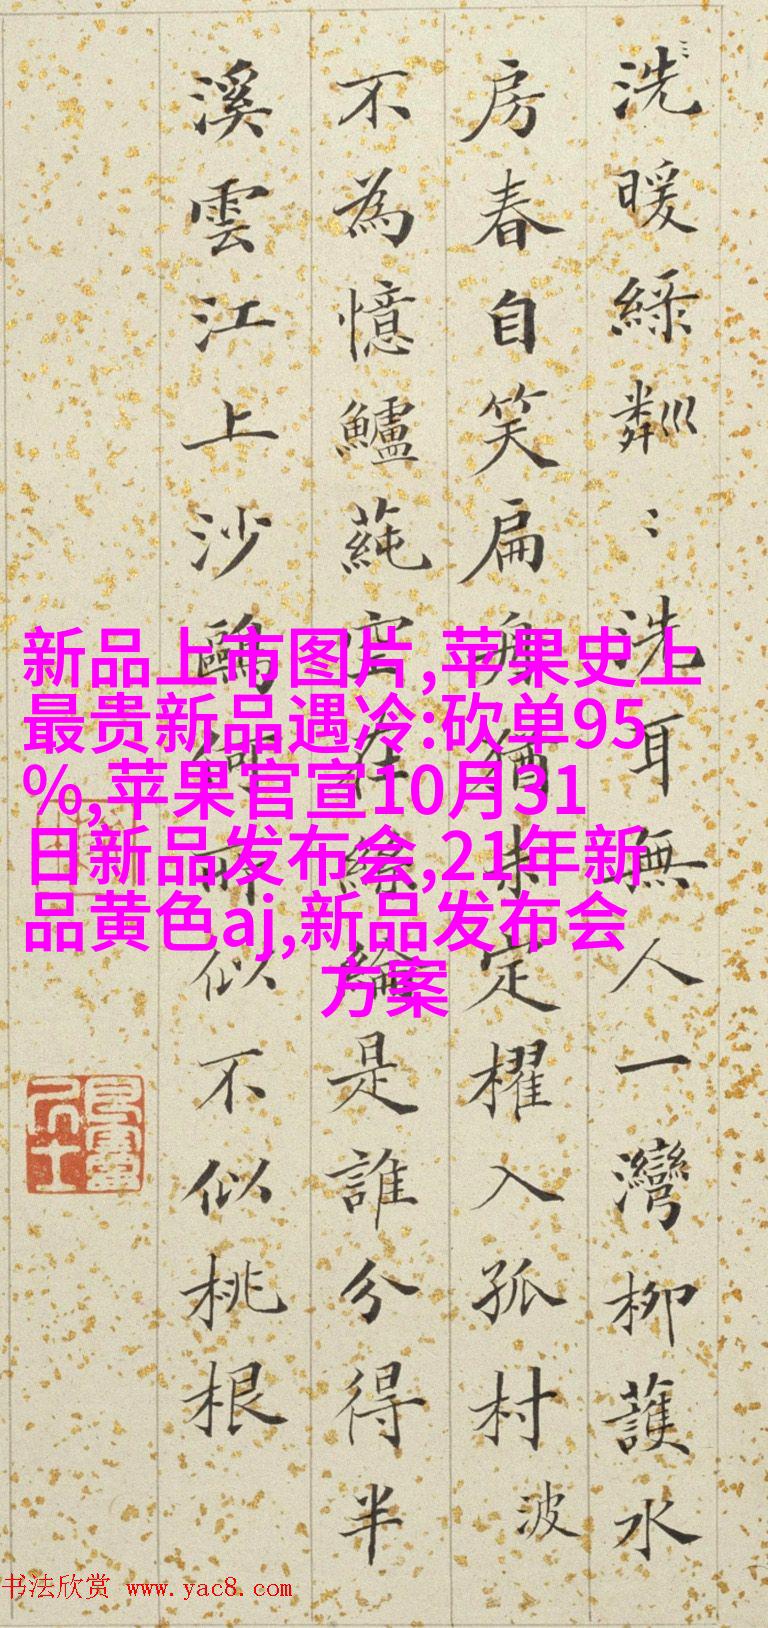 洗暖綵粼〻洗耳無人一灣柳護水
房春自笑扁舟猶未定櫂入孤村波
不為憶鱸蒓空在絲綸是誰分得半
溪雲江上沙鷗何所似不似桃根
新品上市图片,苹果史上
最贵新品遇冷:砍单95
%,苹果官宣10月31
日新品发布会,21年新
品黄色aj,新品发布会
方案
书法欣赏 www.yac8.com